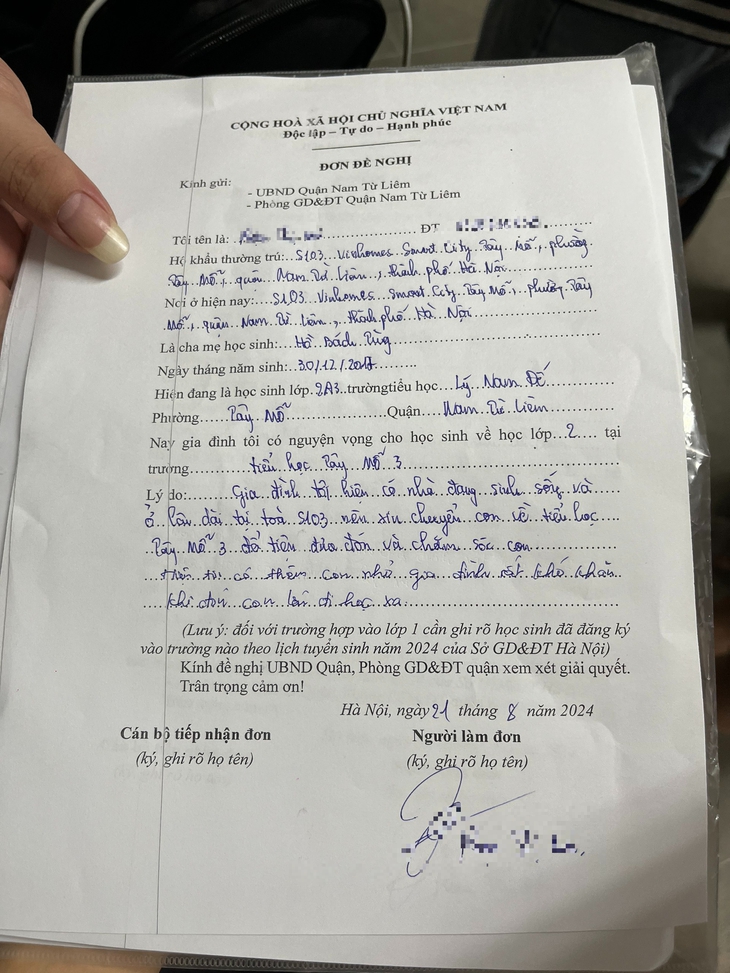 CỘNG HOÀ XÃ HỘI CHỦ NGHĨA VIỆT NAM
Độc lập – Tự do – Hạnh phúc
ĐƠN ĐỀ NGHỊ
Kính gửi:
- UBND Quận Nam Từ Liêm
- Phòng GD&ĐT Quận Nam Từ Liêm
Tôi tên là: ĐT
Hộ khẩu thường trú: S103 Vinhomes Smart City Tây Mỗ, phường
Tây Mỗ, quận Nam Từ Liêm, thành phố Hà Nội
Nơi ở hiện nay: S103 Vinhomes Smart City Tây Mỗ, phường Tây
Mỗ, quận Nam Từ Liêm, thành phố Hà Nội
Là cha mẹ học sinh: Hà Bách Tùng
Ngày tháng năm sinh: 30/12/2017
Hiện đang là học sinh lớp 2A3 trường tiểu học Lý Nam Đế
Phường Tây Mỗ Quận Nam Từ Liêm
Nay gia đình tôi có nguyện vọng cho học sinh về học lớp 2 tại
trường tiểu học Tây Mỗ 3
Lý do: Gia đình tôi hiện có nhà đang sinh sống và
ở lâu dài tại toà S103 nên xin chuyển con về tiểu học
Tây Mỗ 3 để tiện đưa đón và chăm sóc con
có thêm con nhỏ gia đình rất khó khăn
khi đón con lớn đi học xa
(Lưu ý: đối với trường hợp vào lớp 1 cần ghi rõ học sinh đã đăng ký
vào trường nào theo lịch tuyển sinh năm 2024 của Sở GD&ĐT Hà Nội)
Kính đề nghị UBND Quận, Phòng GD&ĐT quận xem xét giải quyết.
Trân trọng cảm ơn!
Hà Nội, ngày 21 tháng 8 năm 2024
Cán bộ tiếp nhận đơn
(ký, ghi rõ họ tên)
Người làm đơn
(ký, ghi rõ họ tên)